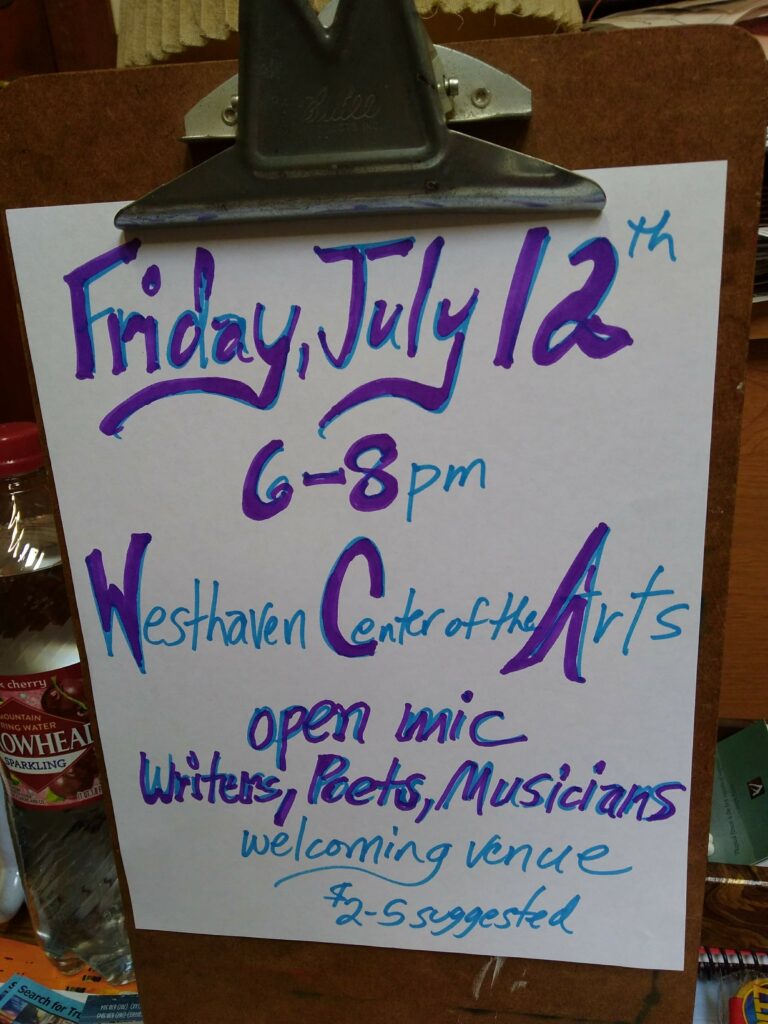 Friday, July 12th
6-8pm
Westhaven Center of the Arts
open mic
Writers, Poets, Musicians
welcoming venue
$2-5 suggested
cherry
MOUNTAIN
SPARKLING
Search for